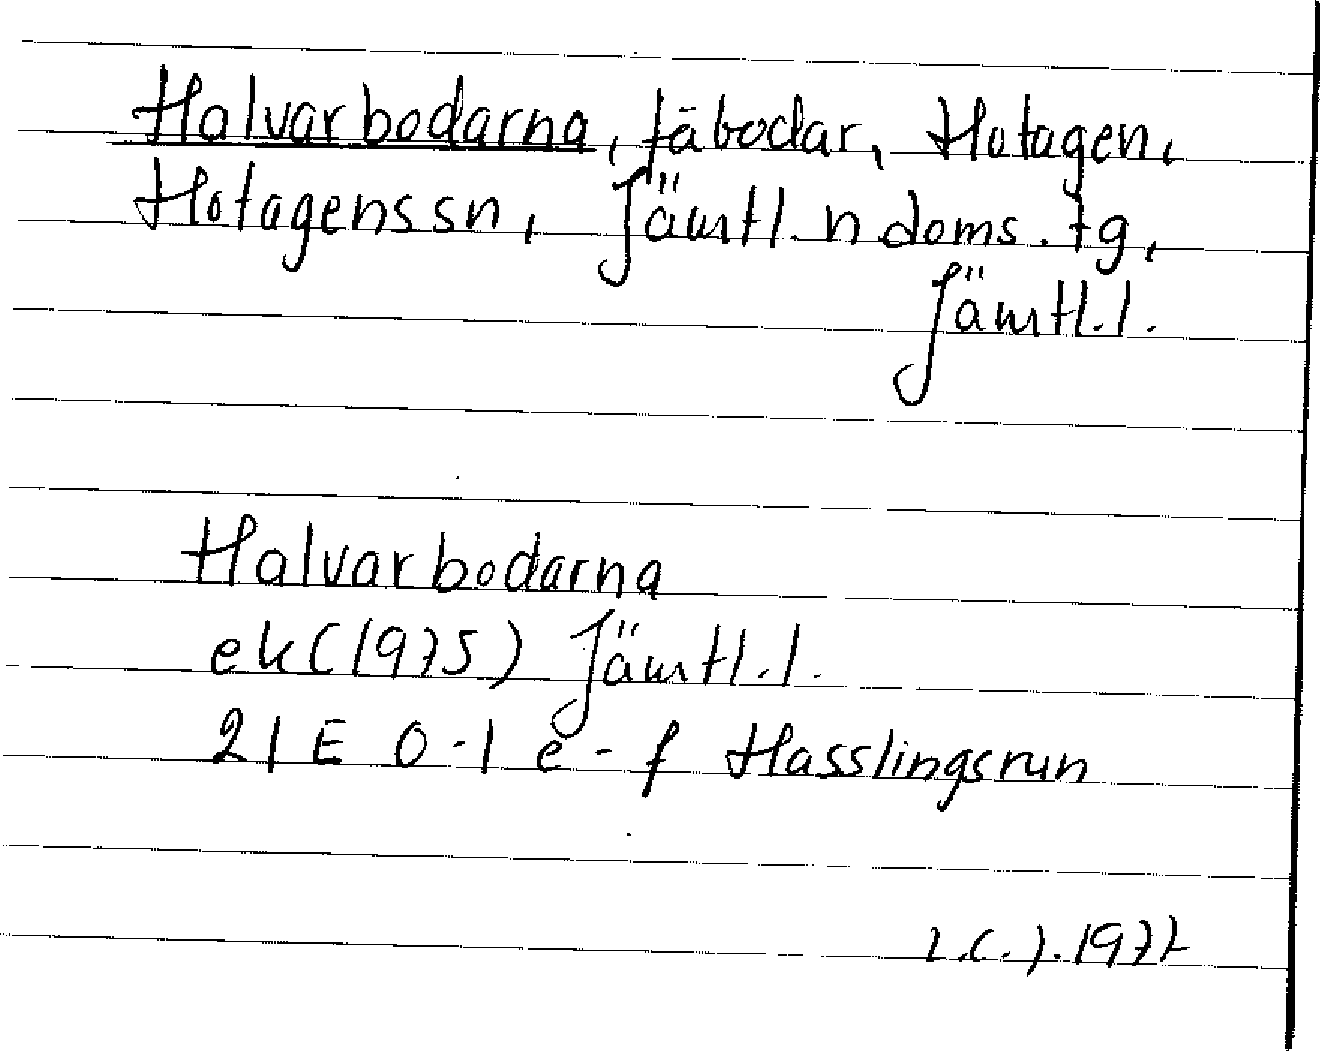 Halvarbodarna, fäbodar, Hotagen,
Hotagens sn, Jämtl. n doms. tg,
Jämtl. l.
Halvarbodarna
ek (1975) Jämtl. l.
21 E 0-1 e-f Hasslingsrun
1977